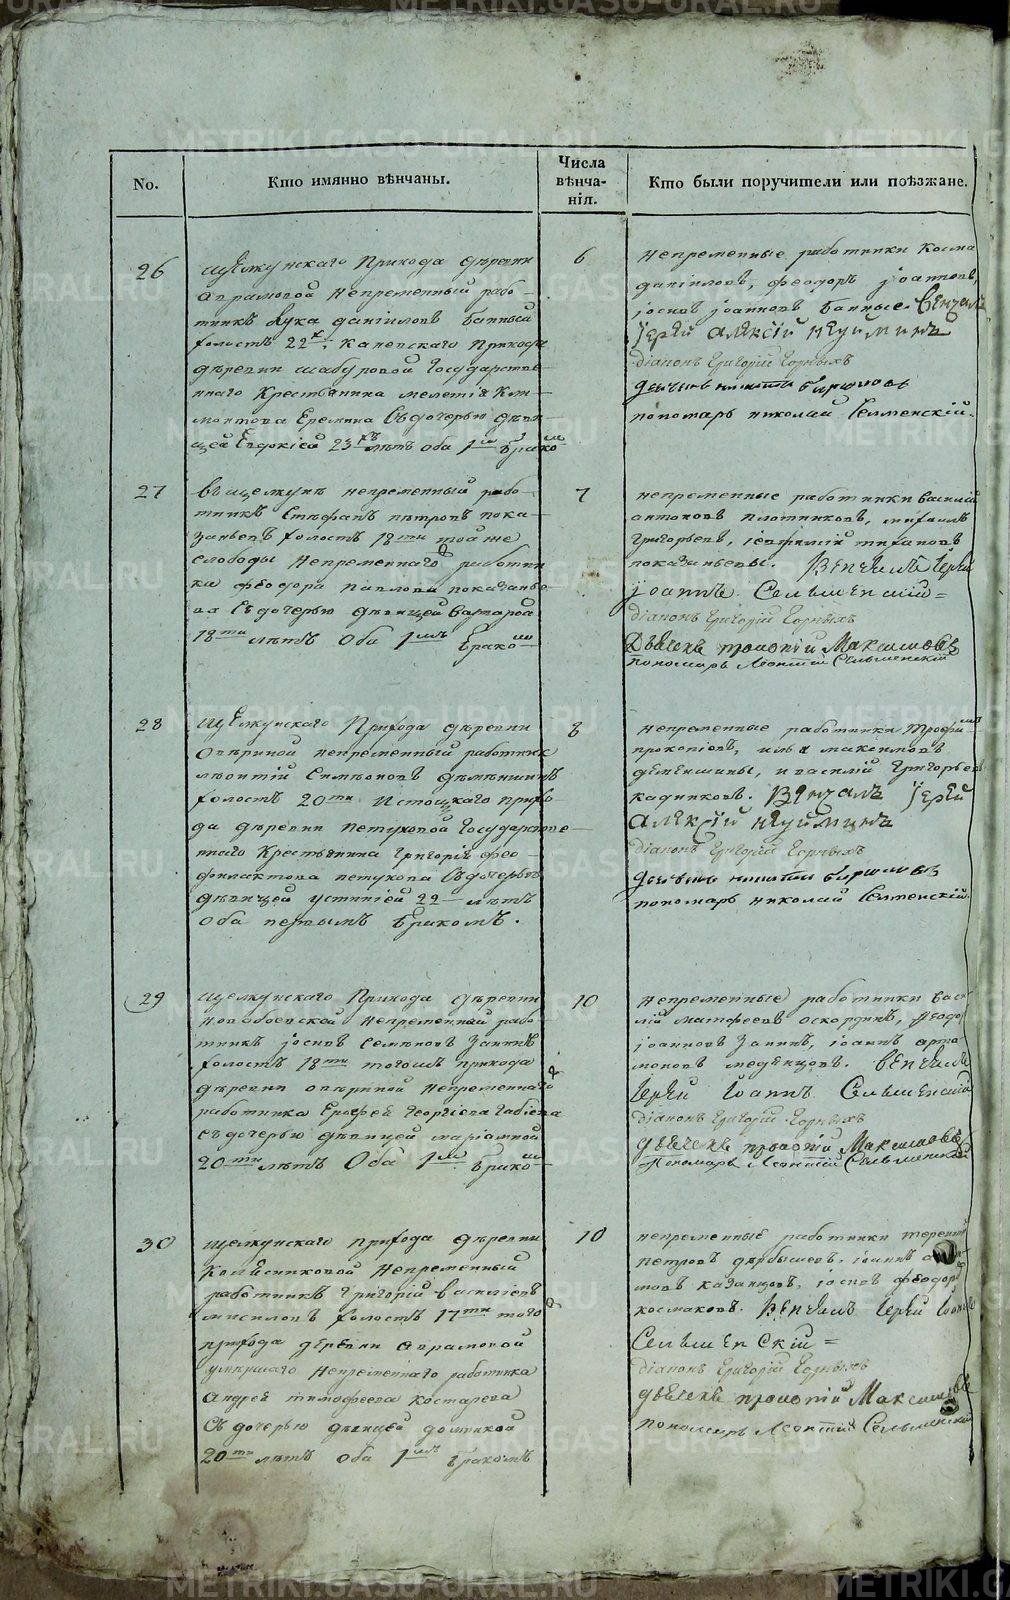 No.
Кто имянно вѣнчаны.
Числа
вѣнча-
нія.
Кто были поручители или поѣзжане.
26
Щелкунскаго Прихода дѣревни
Аврамовой Непременный рабо-
тникъ Лука даніиловъ Банный
холостъ 22х, Каневскаго Прихода
дѣревни шабуровой Государстве-
ннаго Крестьянина мелетія Кли-
монтова Еремина Съ дочерью дѣви-
цей Евдокіей 23х лѣтъ Оба 1мъ Брако
6
непременные работники Косма
даніиловъ, феодоръ іоанновъ,
іосифъ іоанновъ Банные. Венчалъ
іерей Алексій Неуйминъ
діаконъ Григорій Горныхъ
пономарь николай Селменскій.
27
въ щелкунѣ непременный рабо-
тникъ Стефанъ петровъ пока-
заньевъ холостъ 18ти той же
слободы Непременнаго работни
ка феодора павлова показаньь
ва Съ дочерью дѣвицей варварой
18ти лѣтъ Оба 1мъ Брако
7
непременные работники василий
антоновъ плотниковъ, михаилъ
григорьевъ, іевфимій
показаньевы. Венчалъ Іерей
іоаннъ Сельменский=
діаконъ Григорій Горныхъ
Дьячекъ прокопій Максимовъ
пономарь Леонтій Сельменскій
28
Щелкунскаго Прихода дѣревни
непременный работник
лѣонтій Симѣоновъ дѣмѣншинъ
холостъ 20ти Истоцкаго прихо-
да дѣревни петуховой Государстве-
ннаго Крестьянина Григорія фео-
филактова петухова Съ дочерью
дѣвицей устиніей 22 лѣтъ
Оба первымъ Бракомъ.
8
непременные работники Трофимъ
прокопіевъ, илья максимовъ
деменшины, и василій Григорьевъ
кадниковъ. Венчалъ іерей
Алексій Неуйминъ
діаконъ Григорій Горныхъ
пономарь николай Селменскій
29
Щелкунскаго Прихода дѣревни
Непременный рабо-
тникъ іосифъ Семѣновъ Заинъ
холостъ 18ти тогожъ прихода
дѣревни Непременнаго
работника Ерофея Георгіева
съ дочерью дѣвицей маріамной
20ти лѣтъ Оба 1мъ Брако
10
непременные работники васи
лій матфеевъ оскординъ,
іоанновъ Заинъ, іоаннъ арта
моновъ медянцовъ. Венчалъ
Іерей Іоаннъ Сельменский
діаконъ Григорій Горныхъ
дьячекъ прокопій Максимовъ
Пономарь Леонтій Сельменский
30
щелкунскаго прихода дѣревни
Колѣсниковой Непременный
работникъ Григорій василіевъ
холостъ 17ти того
прихода деревни Аврамовой
умершаго Непременнаго работника
Андрея тимофеева костарева
Съ дочерью дѣвицей домникой
20ти лѣтъ Оба 1мъ Бракомъ
10
непременные работники терентій
петровъ дербышевъ, іоаннъ
казанцовъ, іосифъ феодоръ
космаковъ. Венчалъ Іерей Іоаннъ
Сельменский=
діаконъ Григорій Горныхъ
дьячекъ прокопій Максимовъ
пономарь Леонтий Сельменский
METRIKI.GASO-URAL.RU